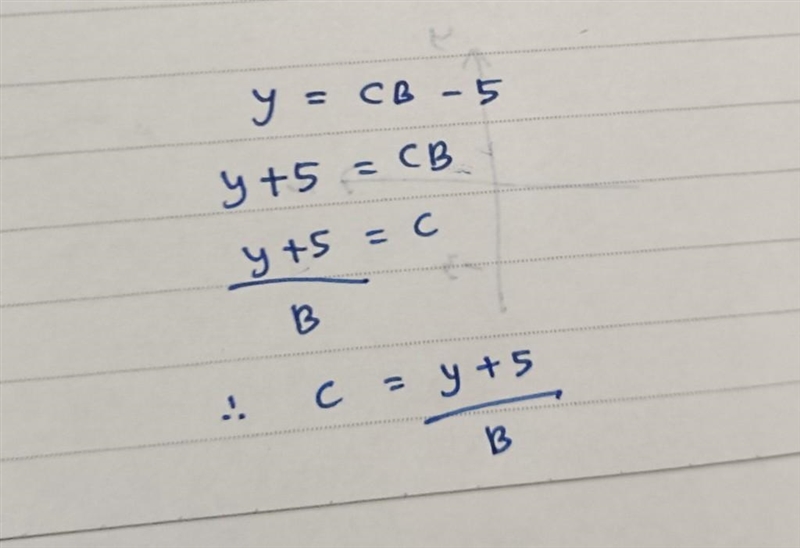 y = CB - 5
y + 5 = CB
y + 5 = C
B
∴ C = y + 5
B